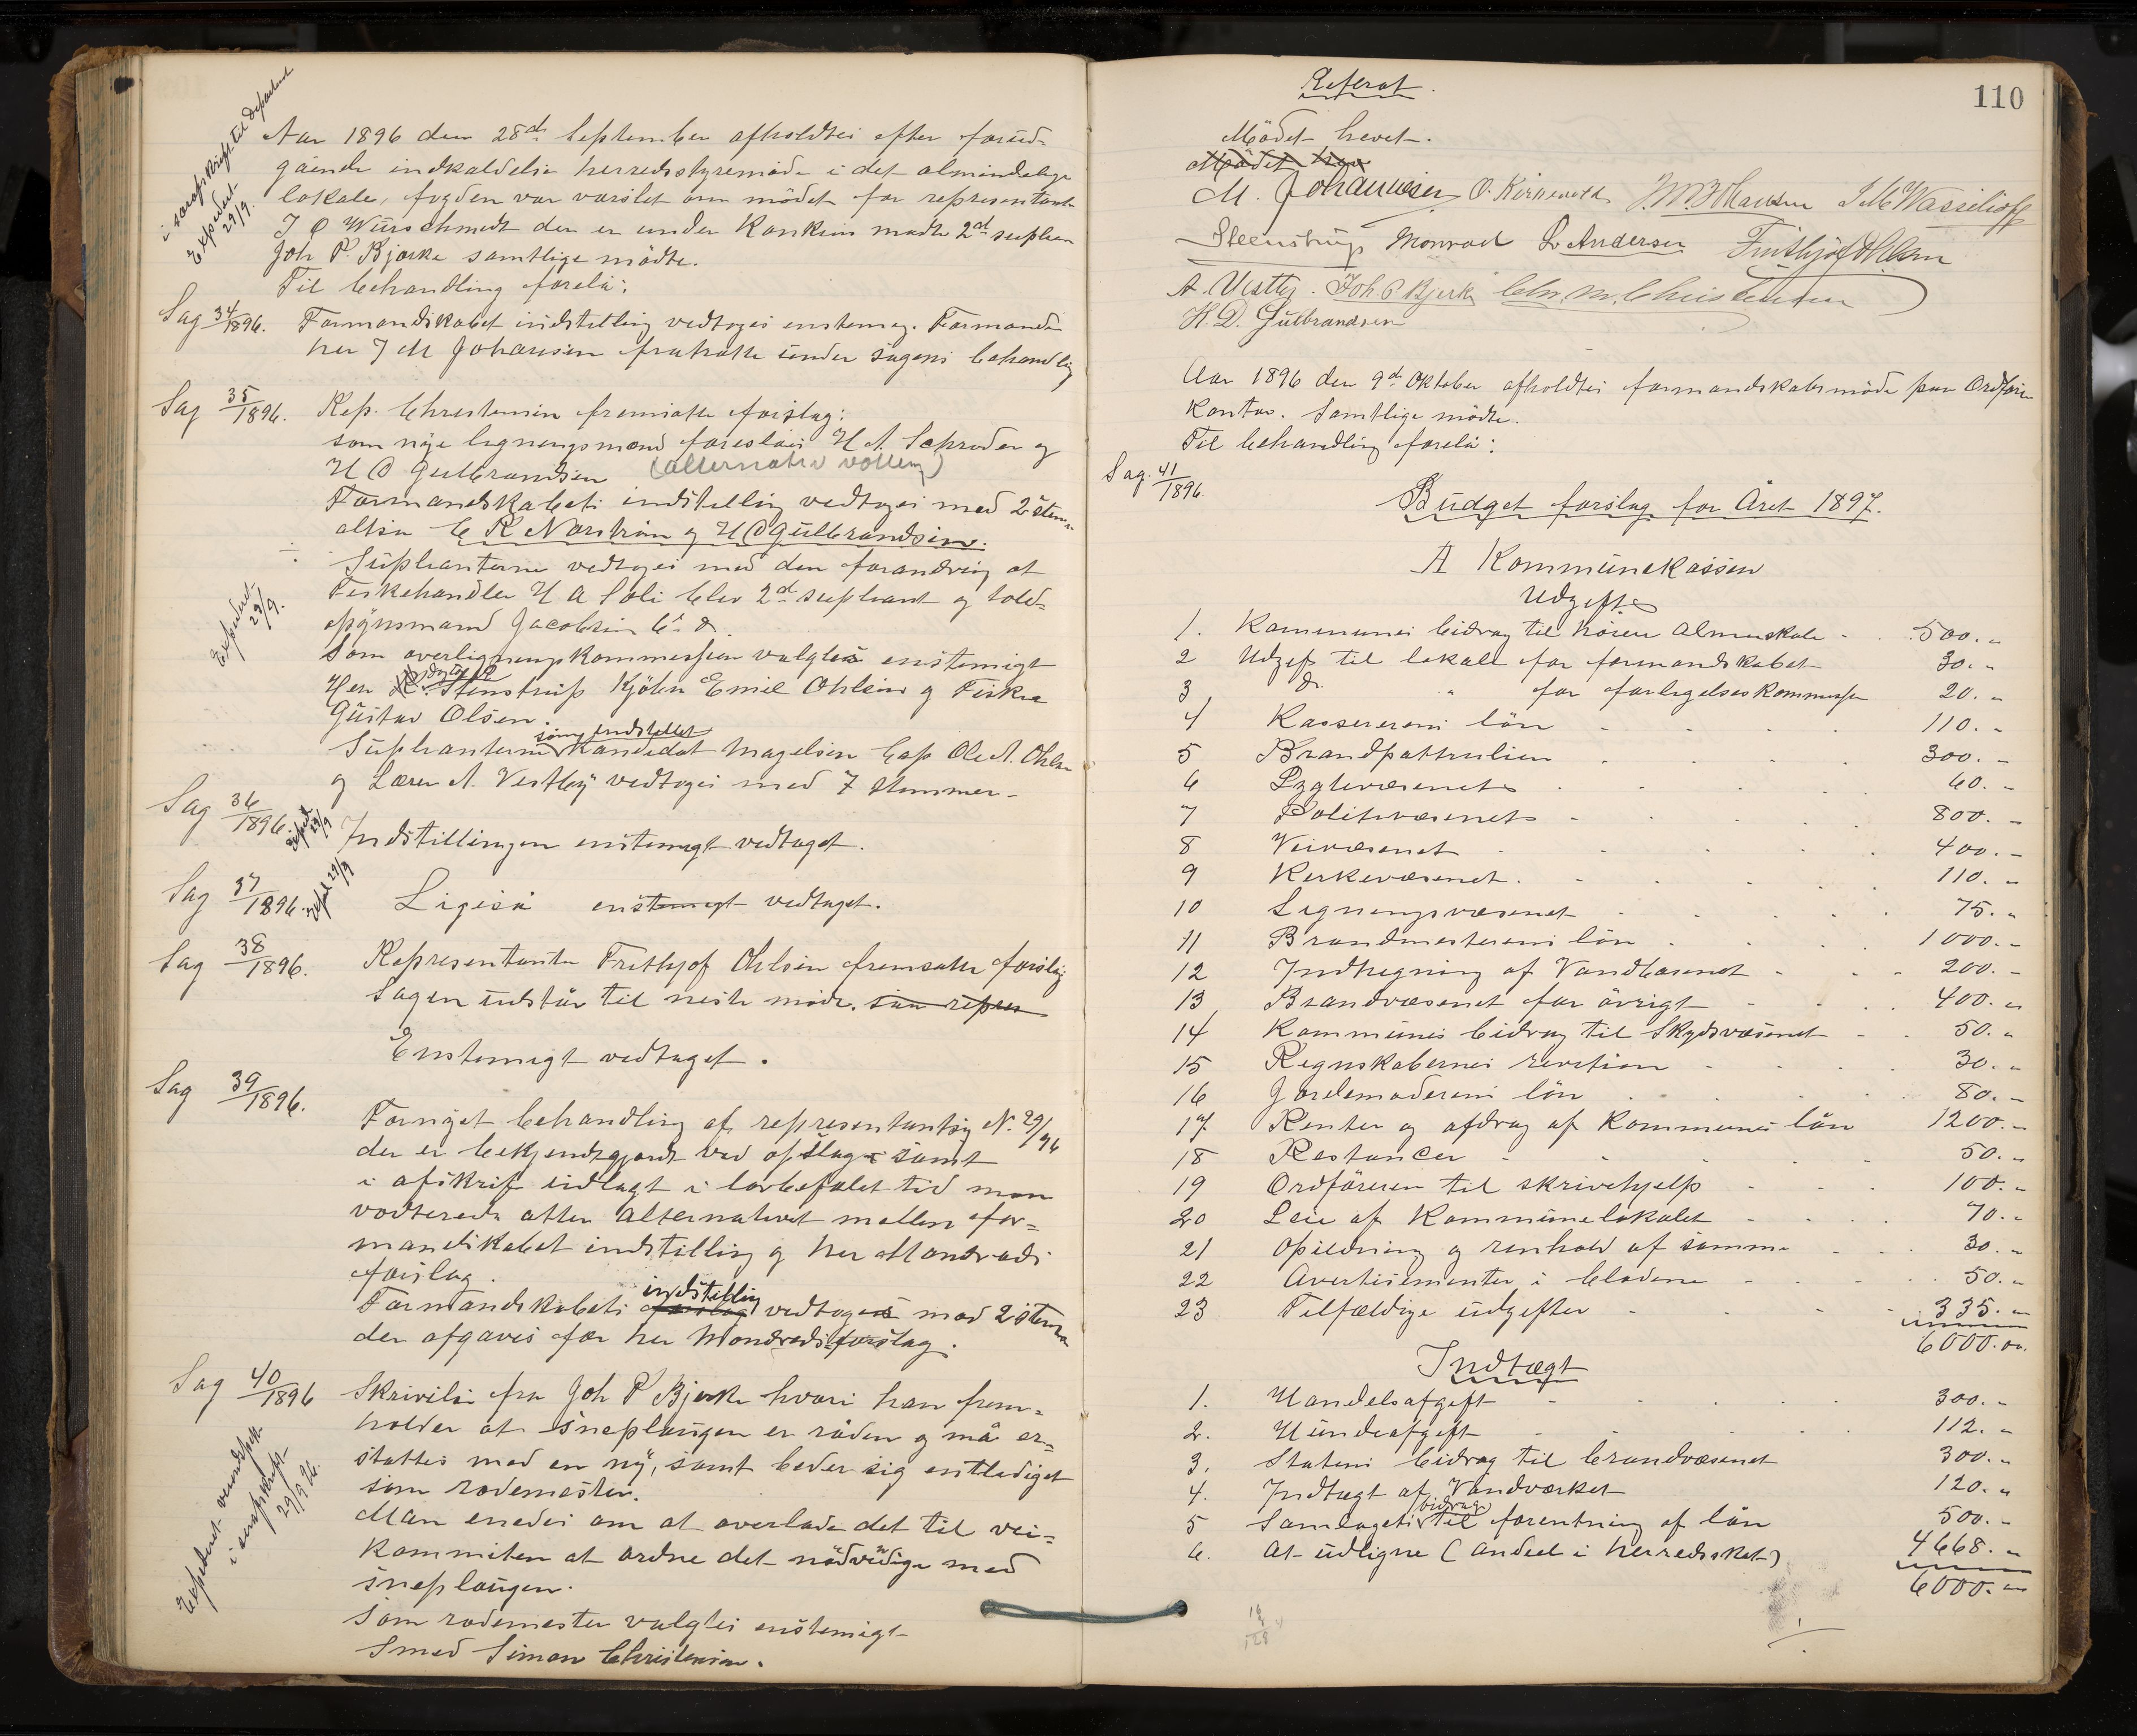 i særafskrift til Departent
Expedert
29/9.
Aar 1896 den 28de September afholdtes efter forud-
gående indkaldelse herredsstyremøde i det almindelige
lokale, fogden var varslet om mödet for representant
J O Wurschmidt der er under Konkurs mødte 2den suplean
Joh P. Bjerke samtlige mödte.
Til behandling forelå:
Sag 34/1896. Formandskabet indstilling vedtoges enstemig. Formanden
her J M Johansen fratrådte under sagens behandling
Sag 35/1896. Rep. Christensen fremsatte forslag:
som nye ligningsmænd foreslåes H A Schrøder og
H D Gulbrandsen (alternativ vottering)
Formandskabets indstilling vedtoges med 2 stem.
altsa C R Norstrøm og H D Gulbrandsen.
Supleanterne vedtoges med den forandring at
Expedert
29/9.
Fiskehandler H A Soli blev 2den supleant og told-
opsynsmand Jacobsen 6te do.
Som overligningskommission valgtes enstemigt
Her Steenstrup Kjöbm Emil Ohlsen og Fisker
Gustav Olsen.
som indstillet
Supleanterne Kandidat Magelsen Cap Ole A. Ohlsen
og Lærer A. Vestby vedtoges med 7 stemmer-
Sag 36/1896. Exped 29/9 Indstillingen enstemigt vedtaget.
Sag 37/1896. Exped 29/9 Ligeså enstemigt vedtaget.
Sag 38/1896. Representanten Frithjof Ohlsen fremsatte forslag
Sagen udstår til neste møde. som repres
Enstemigt vedtaget.
Sag 39/1896.
Fornyet behandling af representantsag N. 29/96
der er bekjendtgjordt ved opslag samt
i afskrift udlagt i lovbefalet tid man
votterede atter alternativt mellem for=
mandskabet indstilling og her Monrads
forslag.
indstilling
Formandskabets forslag vedtoges mod 2 stemmer
der afgaves for her Monrads forslag.
Sag 40/1896 Skrivelse fra Joh P Bjerke hvori han frem=
holder at sneplougen er råden og må er=
stattes med en ny, samt beder sig entlediget
som rodemester.
Expedert
i særafskrift
29/9 96.
Man enedes om at overlade det til vei=
kommiteen at ordne det nødvendige med
sneplougen.
Som rodemester valgtes enstemigt
Smed Simon Christensen.
Referat.
110
Mödet hevet.
Mödet hev
M. Johannesen O. Kirkevold J M Wassilioff
Steenstrup Monrad L. Andersen Frithjof Ohlsen
A. Vestby. Joh P Bjerk Chr. M. Christensen
H. D. Gulbrandsen
Aar 1896 den 9de Oktober afholdtes formandskabsmøde paa Ordførers
Kontor. Samtlige mødte.
Til behandling forelå:
Sag. 41/1896.
Budget forslag for Året 1897.
A Kommunekassen
Udgift
1. Kommunes bidrag til höiere Almueskole - 500. „
2 Udgift til lokale for formandskabet 30. „
3 do. „ for forligelseskommission 20. „
4 Kassererens lön 110. „
5 Brandpattrulien 300. „
6 Lygtevæsenet 60. „
7 Politivæsenet 800. „
8 Veivæsenet 400. „
9 Kirkevæsenet. 110. „
10 Ligningsvæsenet 75. „
11 Brandmesterens lön 1000. „
12 Indhegning af Vandbasenet 200. „
13 Brandvæsenet for övrigt 400. „
14 Kommunes bidrag til Skydsvæsenet 50. „
15 Regnskabernes revition 30. „
16 Jordemoderens lön 80. „
17 Renter og afdrag af Kommunes lån 1200. „
18 Restancer 50. „
19 Ordföreren til skrivehjelp 100. „
20 Leie af Kommunelokalet 70. „
21 Opildning og renhold af samme 30. „
22 Avertisementer i bladene 50. „
23 Tilfældige udgifter 335. „
6000.00.
Indtægt
1. Handelsafgift 300. „
2. Hundeafgift 112. „
3. Statens bidrag til brandvæsenet 300. „
4. Indtægt af Vandværket 120. „
bidrag
5 Samlagets til forentning af lån 500. „
6. At udligne (andeel i herredsskat) 4668. „
6000. „